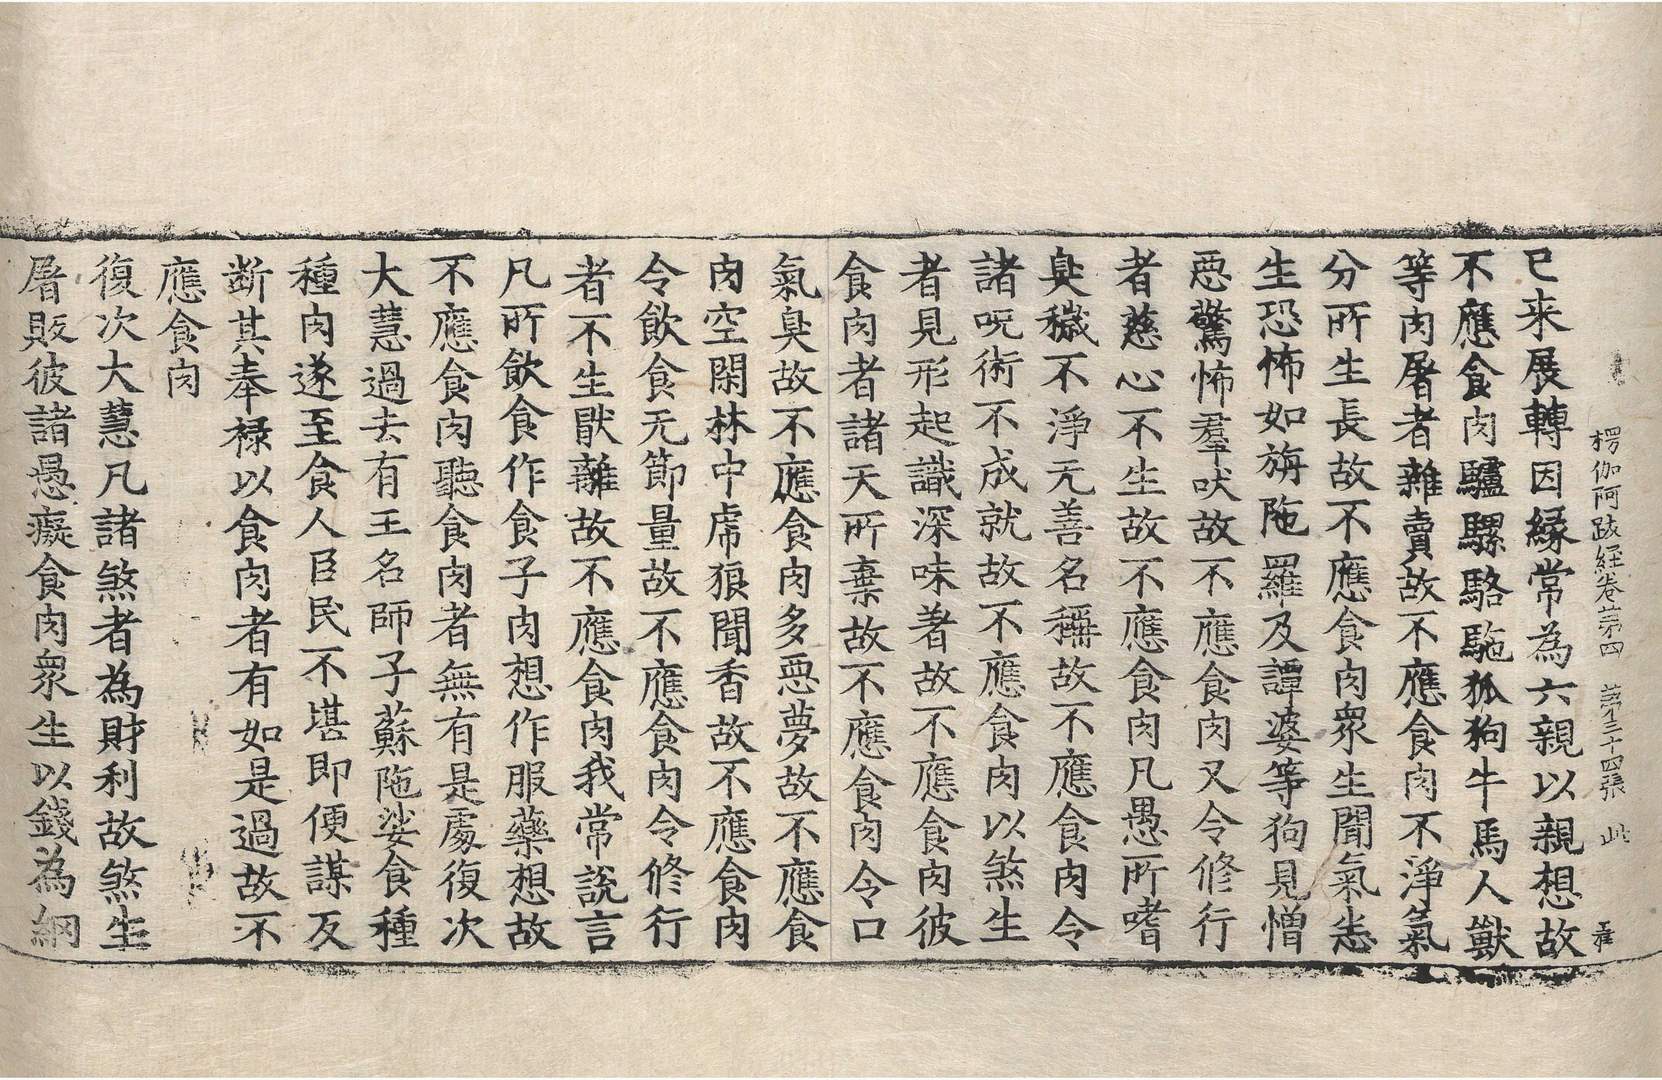 楞伽阿跋經卷第四　第三十四張　此
已来展轉因縁常為六親以親想故
不應食肉驢騾駱駞狐狗牛馬人獸
等肉屠者雜賣故不應食肉不淨氣
分所生長故不應食肉衆生聞氣悉
生恐怖如旃陁羅及譚婆等狗見憎
惡驚怖羣吠故不應食肉又令修行
者慈心不生故不應食肉凡愚所嗜
臭穢不淨无善名稱故不應食肉令
諸呪術不成就故不應食肉以煞生
者見形起識深味著故不應食肉彼
食肉者諸天所棄故不應食肉令口
氣臭故不應食肉多惡夢故不應食
肉空閑林中虎狼聞香故不應食肉
令飲食无節量故不應食肉令修行
者不生猒離故不應食肉我常說言
凡所飲食作食子肉想作服藥想故
不應食肉聽食肉者無有是處復次
大慧過去有王名師子蘇陁娑食種
種肉遂至食人臣民不堪即便謀反
断其奉禄以食肉者有如是過故不
應食肉
復次大慧凡諸煞者為財利故煞生
屠販彼諸愚癡食肉衆生以錢為網